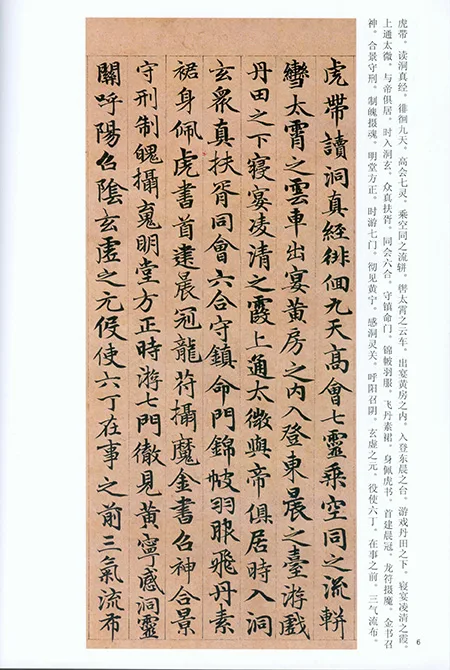 虎带。读洞真经。徘徊九天。高会七灵。乘空同之流軿。辔太霄之云车。出宴黄房之内。入登东晨之台。游戏丹田之下。寝宴凌清之霞。
上通太微。与帝俱居。时入洞玄。众真扶胥。同会六合。守镇命门。锦帔羽服。飞丹素裙。身佩虎书。首建晨冠。龙符摄魔。金书召
神。合景守刑。制魄摄魂。明堂方正。时游七门。彻见黄宁。感洞灵关。呼阳召阴。玄虚之元。役使六丁。在事之前。三气流布。
虎帶讀洞真経徘佪九天高會七靈乗空同之流軿
轡太霄之雲車出宴黄房之内入登東晨之臺游戲
丹田之下寢宴凌清之霞上通太微與帝俱居時入洞
玄衆真扶胥同會六合守鎮命門錦帔羽服飛丹素
裙身佩虎書首建晨冠龍符攝魔金書召神合景
守刑制魄攝䰟明堂方正時游七門徹見黄寧感洞靈
關呼陽召陰玄虚之元役使六丁在事之前三氣流布
6